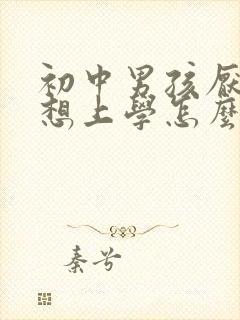 初中男孩厭
想上學怎麼
秦兮